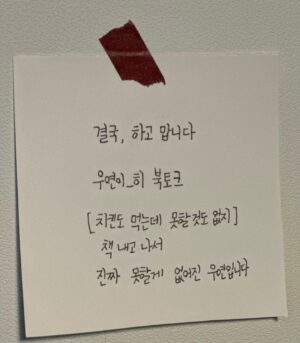 결국, 하고 맙니다
우연이_히 북토크
[치킨도 먹는데 못할 것도 없지]
책 내고 나서
진짜 못할게 없어진 우연입니다